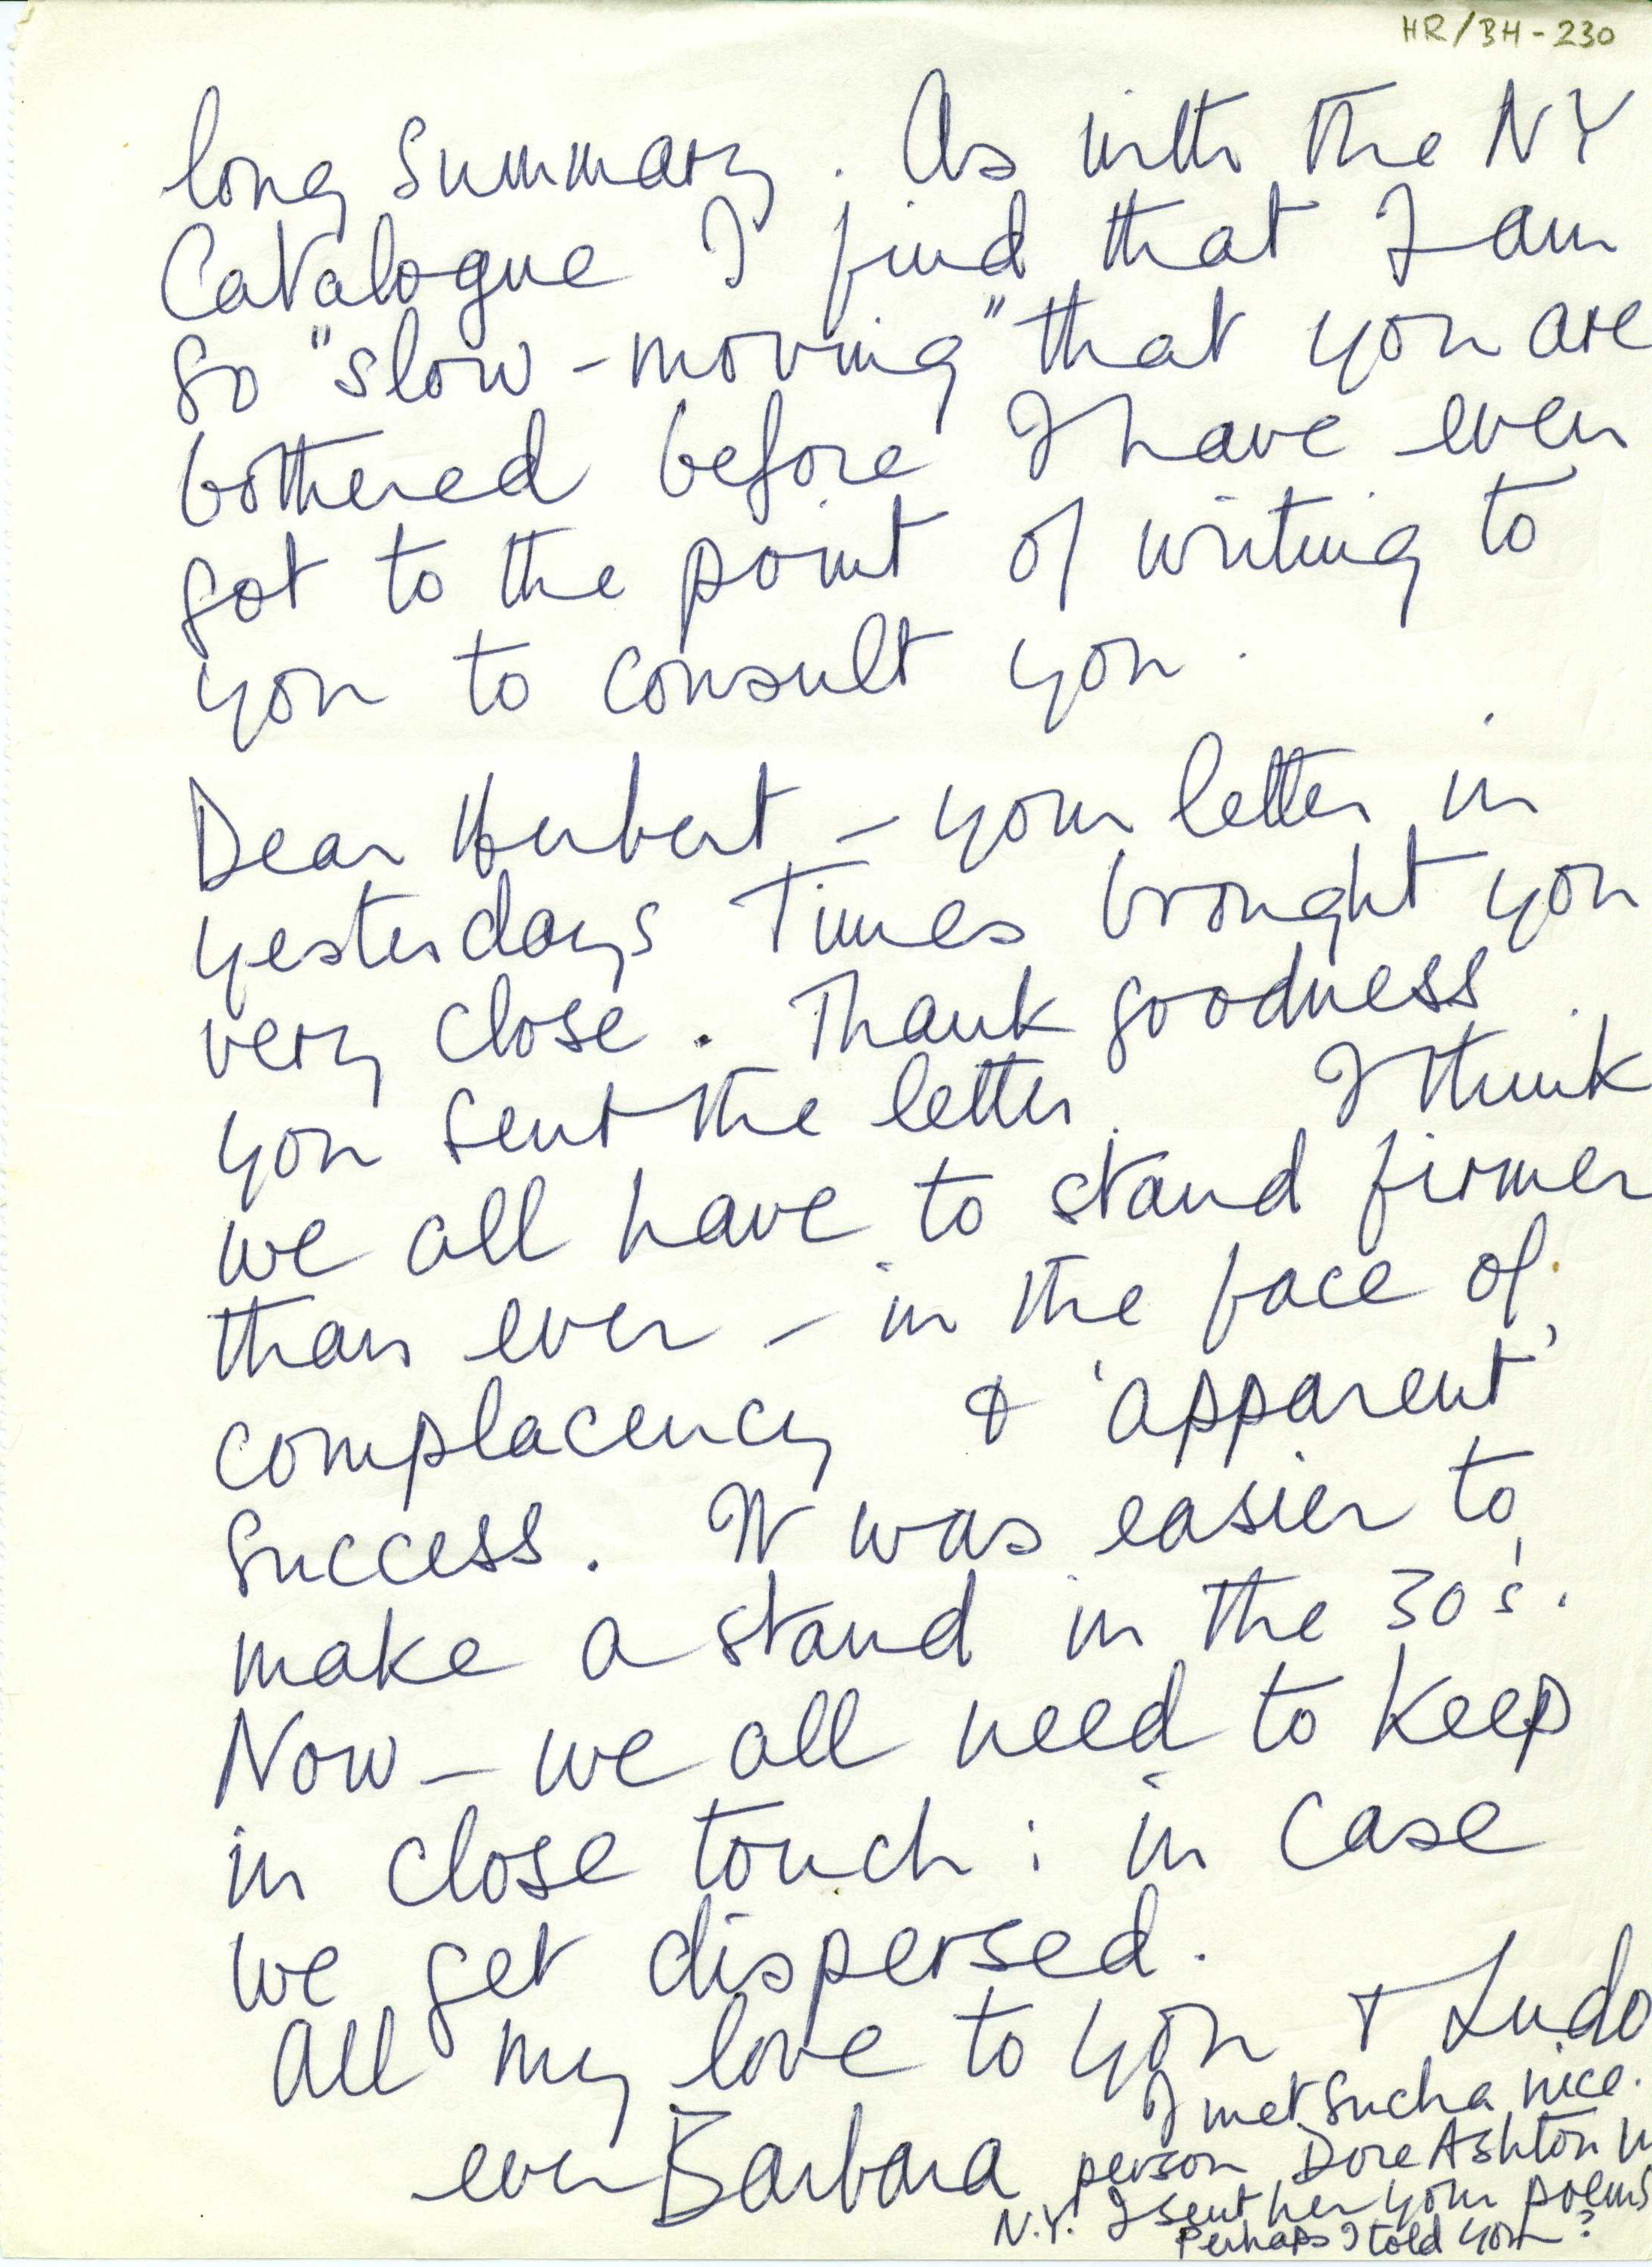 HR/BH-230
long summary. As with the NY
Catalogue I find that I am
so "slow-moving" that you are
bothered before I have even
got to the point of writing to
you to consult you.
Dear Herbert – your letter in
yesterdays Times brought you
very close. Thank goodness
you sent the letter. I think
we all have to stand firmer
than ever – in the face of
complacency & 'apparent'
success. It was easier to
make a stand in the 30's.
Now – we all need to keep
in close touch: in case
we get dispersed.
All my love to you + Ludo
ever Barbara
I met such a nice
person Dore Ashton in
N.Y. I sent her your poems
Perhaps I told you?